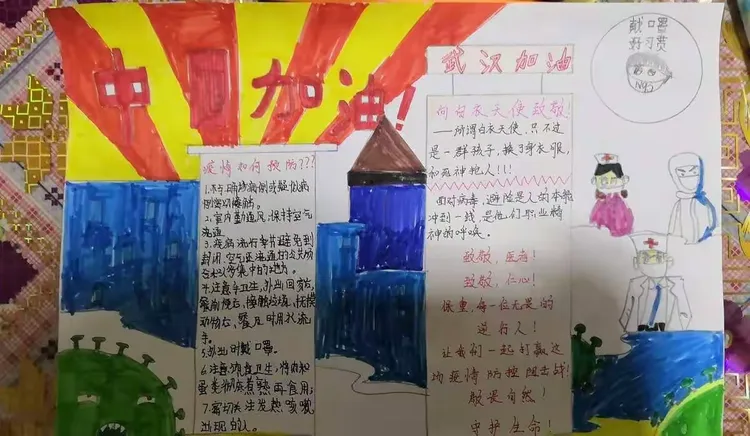 中国加油!
武汉加油
戴口罩
好习惯
N95
疫情如何控防???
1.不与确诊病例或疑似病
2.室内勤通风,保持空气
流通。
3.疾病流行季节避免到
封闭、空气不流通的公共场
4.注意手卫生,外出回家后,
餐前便后、接触垃圾、抚摸
动物后,要及时用水洗
手。
5.外出时戴口罩。
6.注意饮食卫生,将肉和
蛋类彻底煮熟再食用;
7.密切关注发热咳嗽
出现的人。
向白衣天使致敬
——所谓白衣天使,只不过
是一群孩子,换了身衣服,
和死神抢人!!!
面对病毒,避险是人的本能
冲到一线,是他们职业精
神的呼唤。
致敬,医者!
致敬,仁心!
保重,每一位无畏的
逆行人!
让我们一起打赢这
场疫情防控阻击战!
敬畏自然!
守护生命!